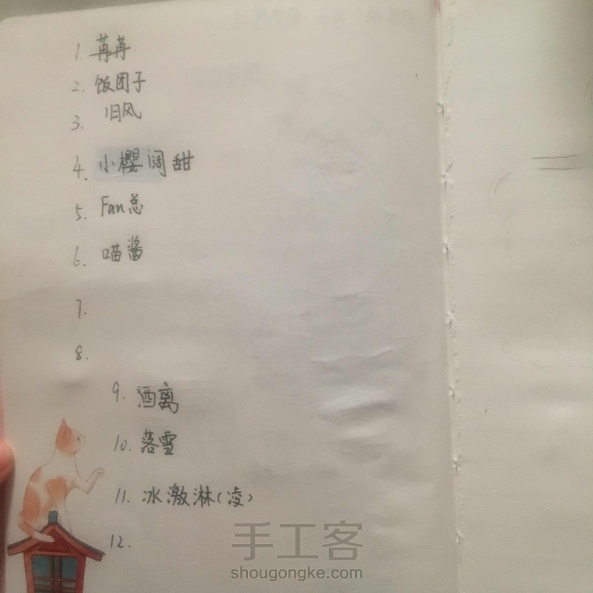 1 苒苒
2. 饭团子
3. 旧风
4. 小樱阔甜
5. Fan总
6. 喵酱
7.
8.
9. 酒离
10. 落雪
11. 冰激淋(凌)
12.
手工客
shougongke.com